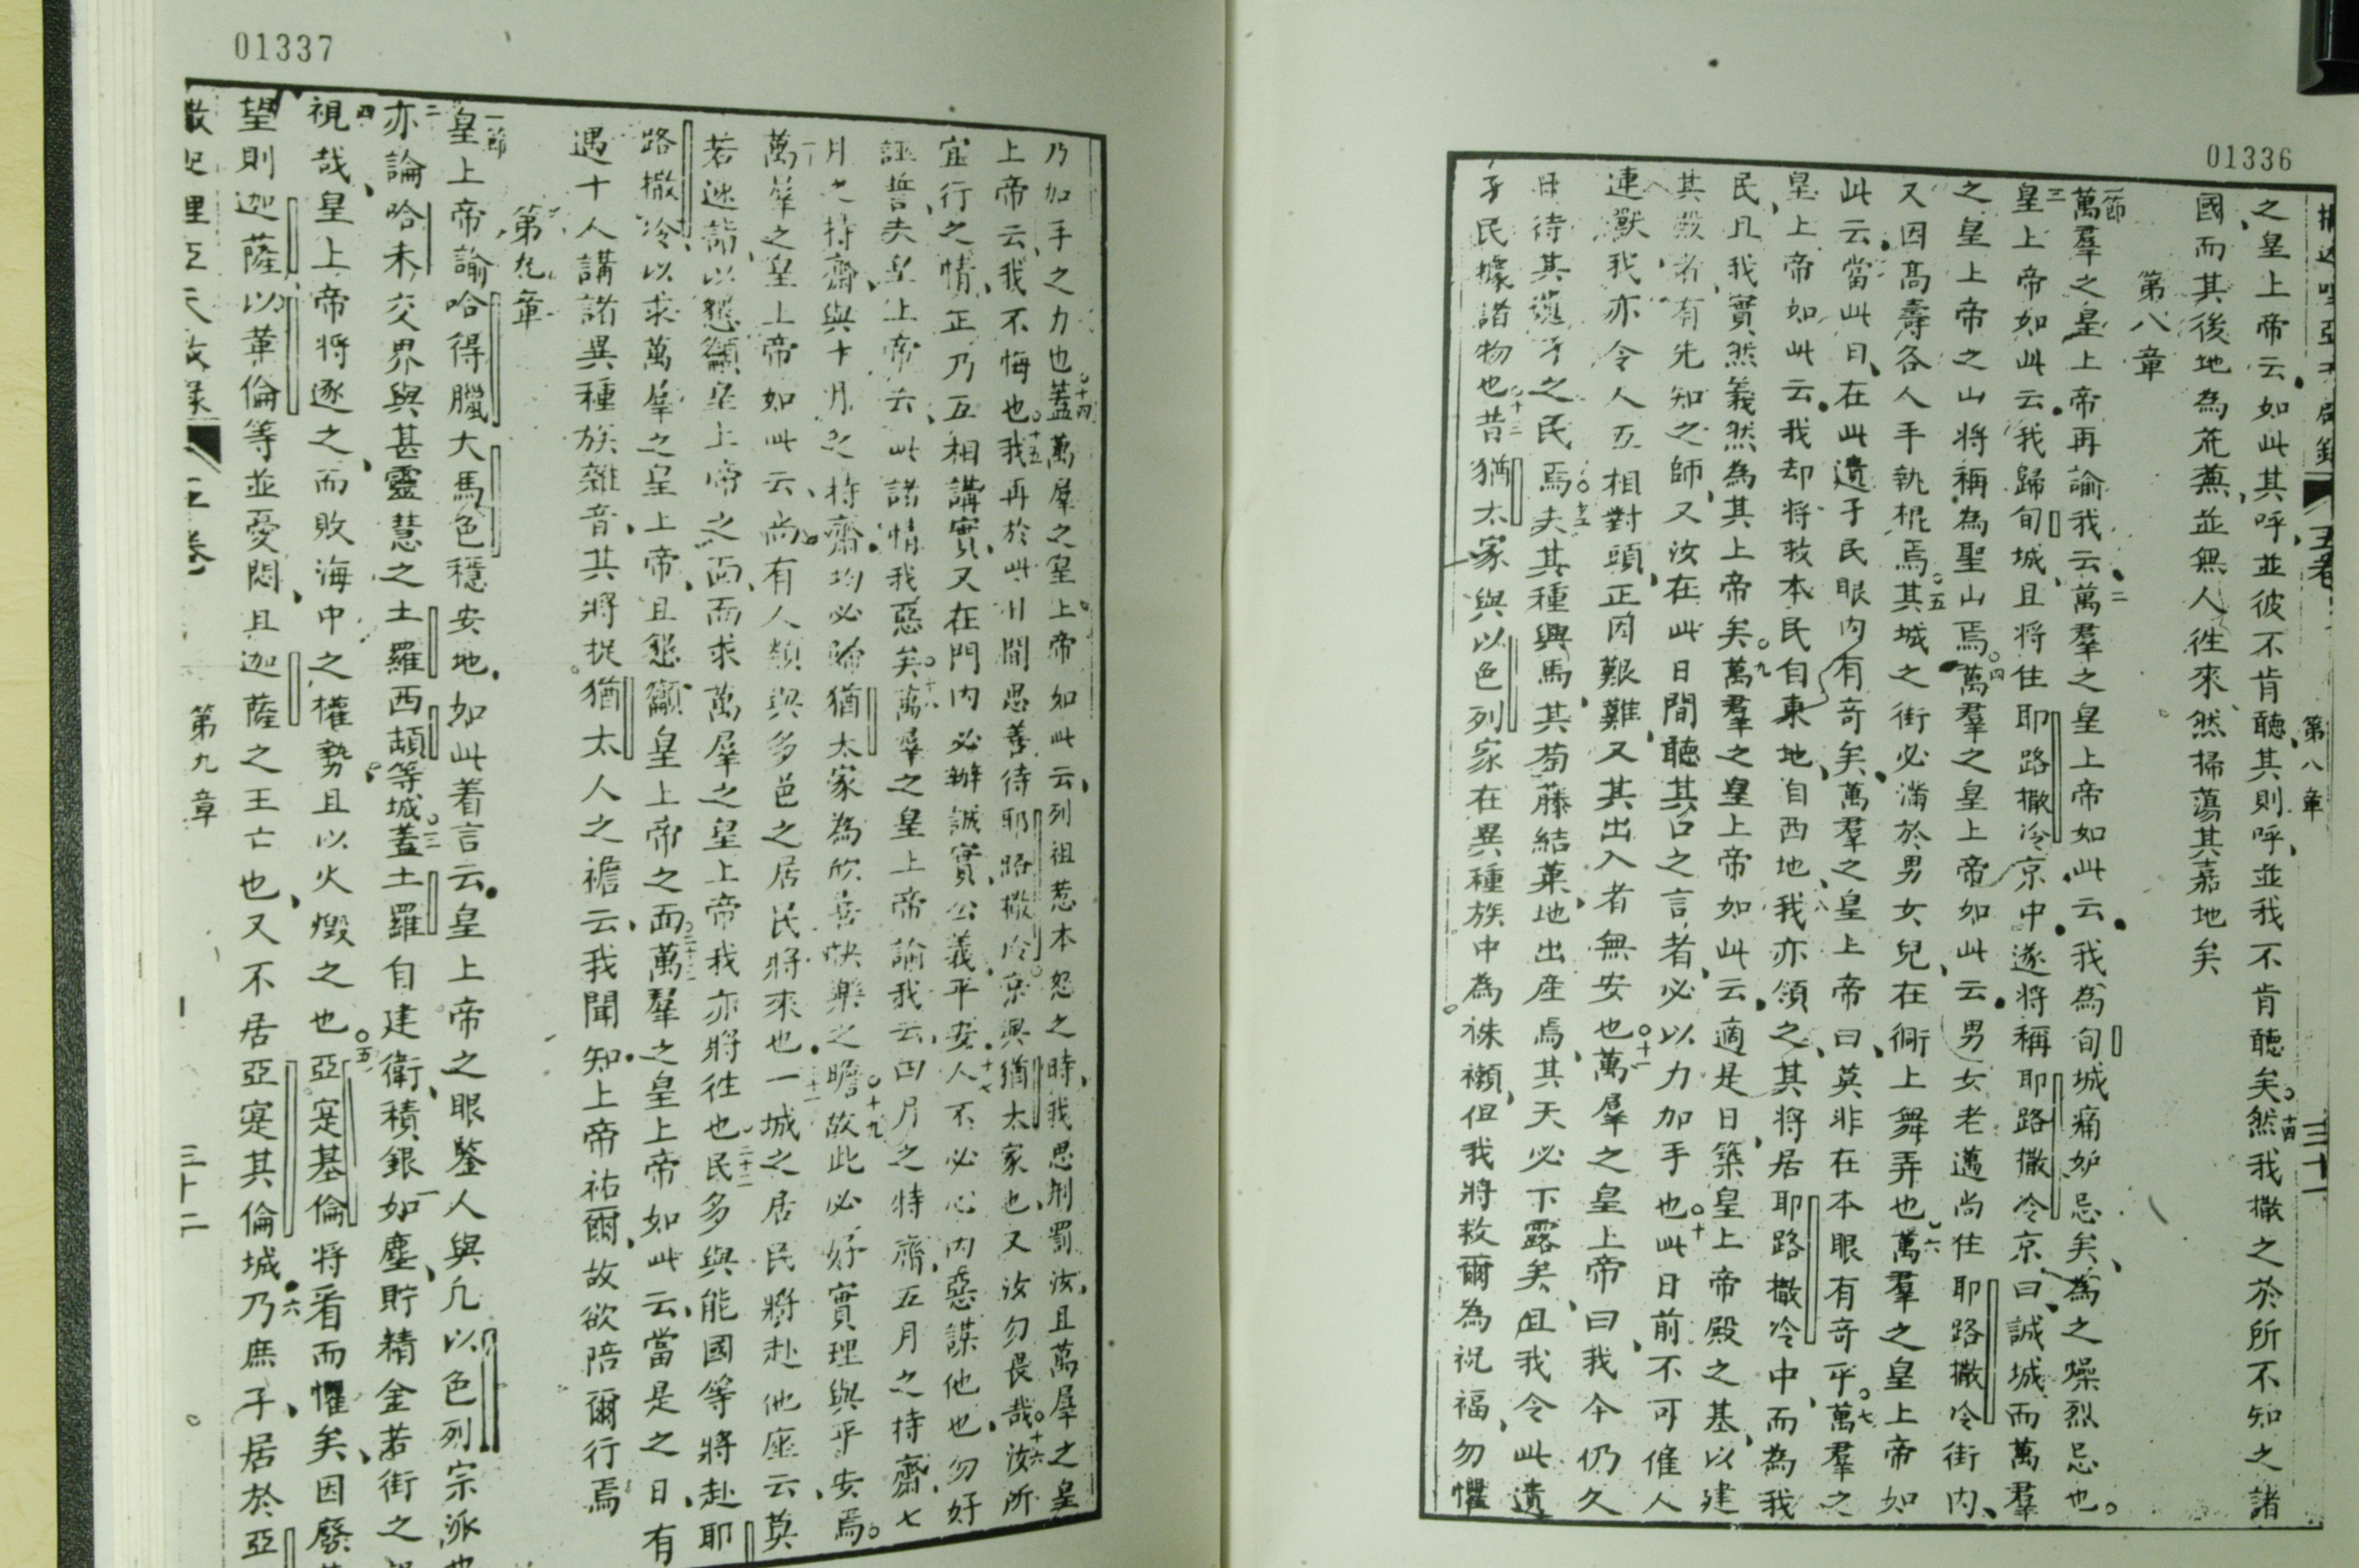 01336
撒迦哩亞天啟錄 五卷 第八章 三十一
之皇上帝云如此其呼並彼不肯聽其則呼並我不肯聽矣十四然我撒之於所不知之諸
國而其後地為荒蕪並無人徃來然掃蕩其嘉地矣
第八章
一節萬羣之皇上帝再諭我云二萬羣之皇上帝如此云我為旬城痛妒忌矣為之燥烈忌也
三皇上帝如此云我歸旬城且将住耶路撒冷京中遂将稱耶路撒冷京曰誠城而萬羣
之皇上帝之山将稱為聖山焉四萬羣之皇上帝如此云男女老邁尚住耶路撒冷街内
又因髙壽各人手執棍焉五其城之街必滿於男女兒在衕上舞弄也六萬羣之皇上帝如
此云當此日在此遺孑民眼内有奇矣萬羣之皇上帝曰莫非在本眼有奇乎七萬羣之
皇上帝如此云我却将救本民自東地自西地八我亦領之其将居耶路撒冷中而為我
民且我實然義然為其上帝矣九萬羣之皇上帝如此云適是日築皇上帝殿之基以建
其殿者有先知之師又汝在此日間聽其口之言者必以力加手也十此日前不可僱人
連獸我亦令人互相對頭正因艱難又其出入者無安也十一萬羣之皇上帝曰我今仍久
日待其遺孑之民焉十二夫其種興焉其萄藤結菓地出産焉其天必下露矣且我令此遺
孑民據諸物也十三昔猶太家與以色列家在異種族中為袾襰但我將救爾為祝福勿懼
01337
乃加手之力也十四蓋萬羣之皇上帝如此云列祖惹本怒之時我思刑罰汝且萬羣之皇
上帝云我不悔也十五我再於此日間思善待耶路撒冷京與猶太家也又汝勿畏哉十六汝所
宜行之情正乃互相講實又在門内必辦誠實公義平安十七人不必心内惡謀他也勿好
誣誓夫皇上帝云此諸情我惡矣十八萬羣之皇上帝諭我云四月之持齋五月之持齋七
月之持齋與十月之持齋均必歸猶太家為欣喜快樂之瞻十九故此必好實理與平安焉
萬羣之皇上帝如此云尚有人類與多邑之居民將來也二十一一城之居民將赴他座云莫
若速詣以懇籲皇上帝之面而求萬羣之皇上帝我亦將徃也二十二民多與能國等將赴耶
路撒冷以求萬羣之皇上帝且懇籲皇上帝之面二十三萬羣之皇上帝如此云當是之日有
遇十人講諸異種族雜音其將捉猶太人之襜云我聞知上帝祐爾故欲陪爾行焉
第九章
一節皇上帝諭哈得臘大馬色穩安地如此着言云皇上帝之眼鑒人與凢以色列宗派
二亦論哈末交界與甚靈慧之土羅西頡等城三蓋土羅自建衛積銀如塵貯精金若街之
四視哉皇上帝将逐之而敗海中之權勢且以火燬之也五亞寔基倫将看而懼矣因廢
望則迦薩以革倫等並憂悶且迦薩之王亡也又不居亞寔其倫城六乃庶子居於亞
第九章 三十二